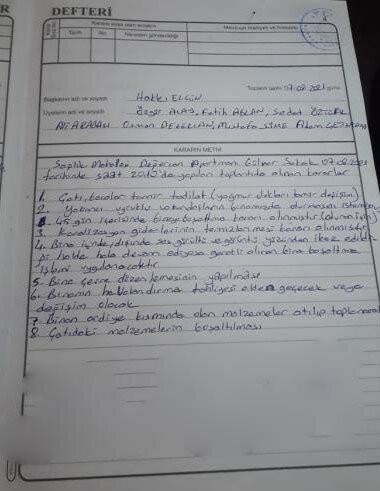 R
DEFTERİ
Kararın esas olan evrakın
Tarih
No.
Nereden gönderildiği
Toplantı tarihi 07.02.2021 günü
Başkanın adı ve soyadı Hakkı ELGİN
Üyelerin adı ve soyadı Özgür ALAŞ, Fatih ASLAN, Sedat
Ali ARABALI Osman Mustafa Adem
KARARIN METNİ
Sağlık Mahallesi Apartman Sokak 07.02.2021
tarihinde saat 20:00'de yapılan toplantıda alınan kararlar
1. Çatı, bacalar tamir tadilat (yağmur olukları tamir değişim)
2. Yabancı uyruklu vatandaşların binamızda durmasını istemiyoruz
45 gün içerisinde binayı boşaltma kararı alınmıştır
3. Kanalizasyon giderlerinin temizlenmesi kararı alınmıştır
4. Bina içinde/dışında ses gürültü yüzünden ikaz edildiği
halde hala devam ediyorsa gerekli olan bina boşaltma
işlemi uygulanacaktır
5. Bina çevre düzenlemesinin yapılması
6. Binanın havalandırma elden geçecek veya
değişim olacak
7. Binan ardiye kısmında olan malzemeler atılıp toplanacak
8. Çatıdaki malzemelerin boşaltılması